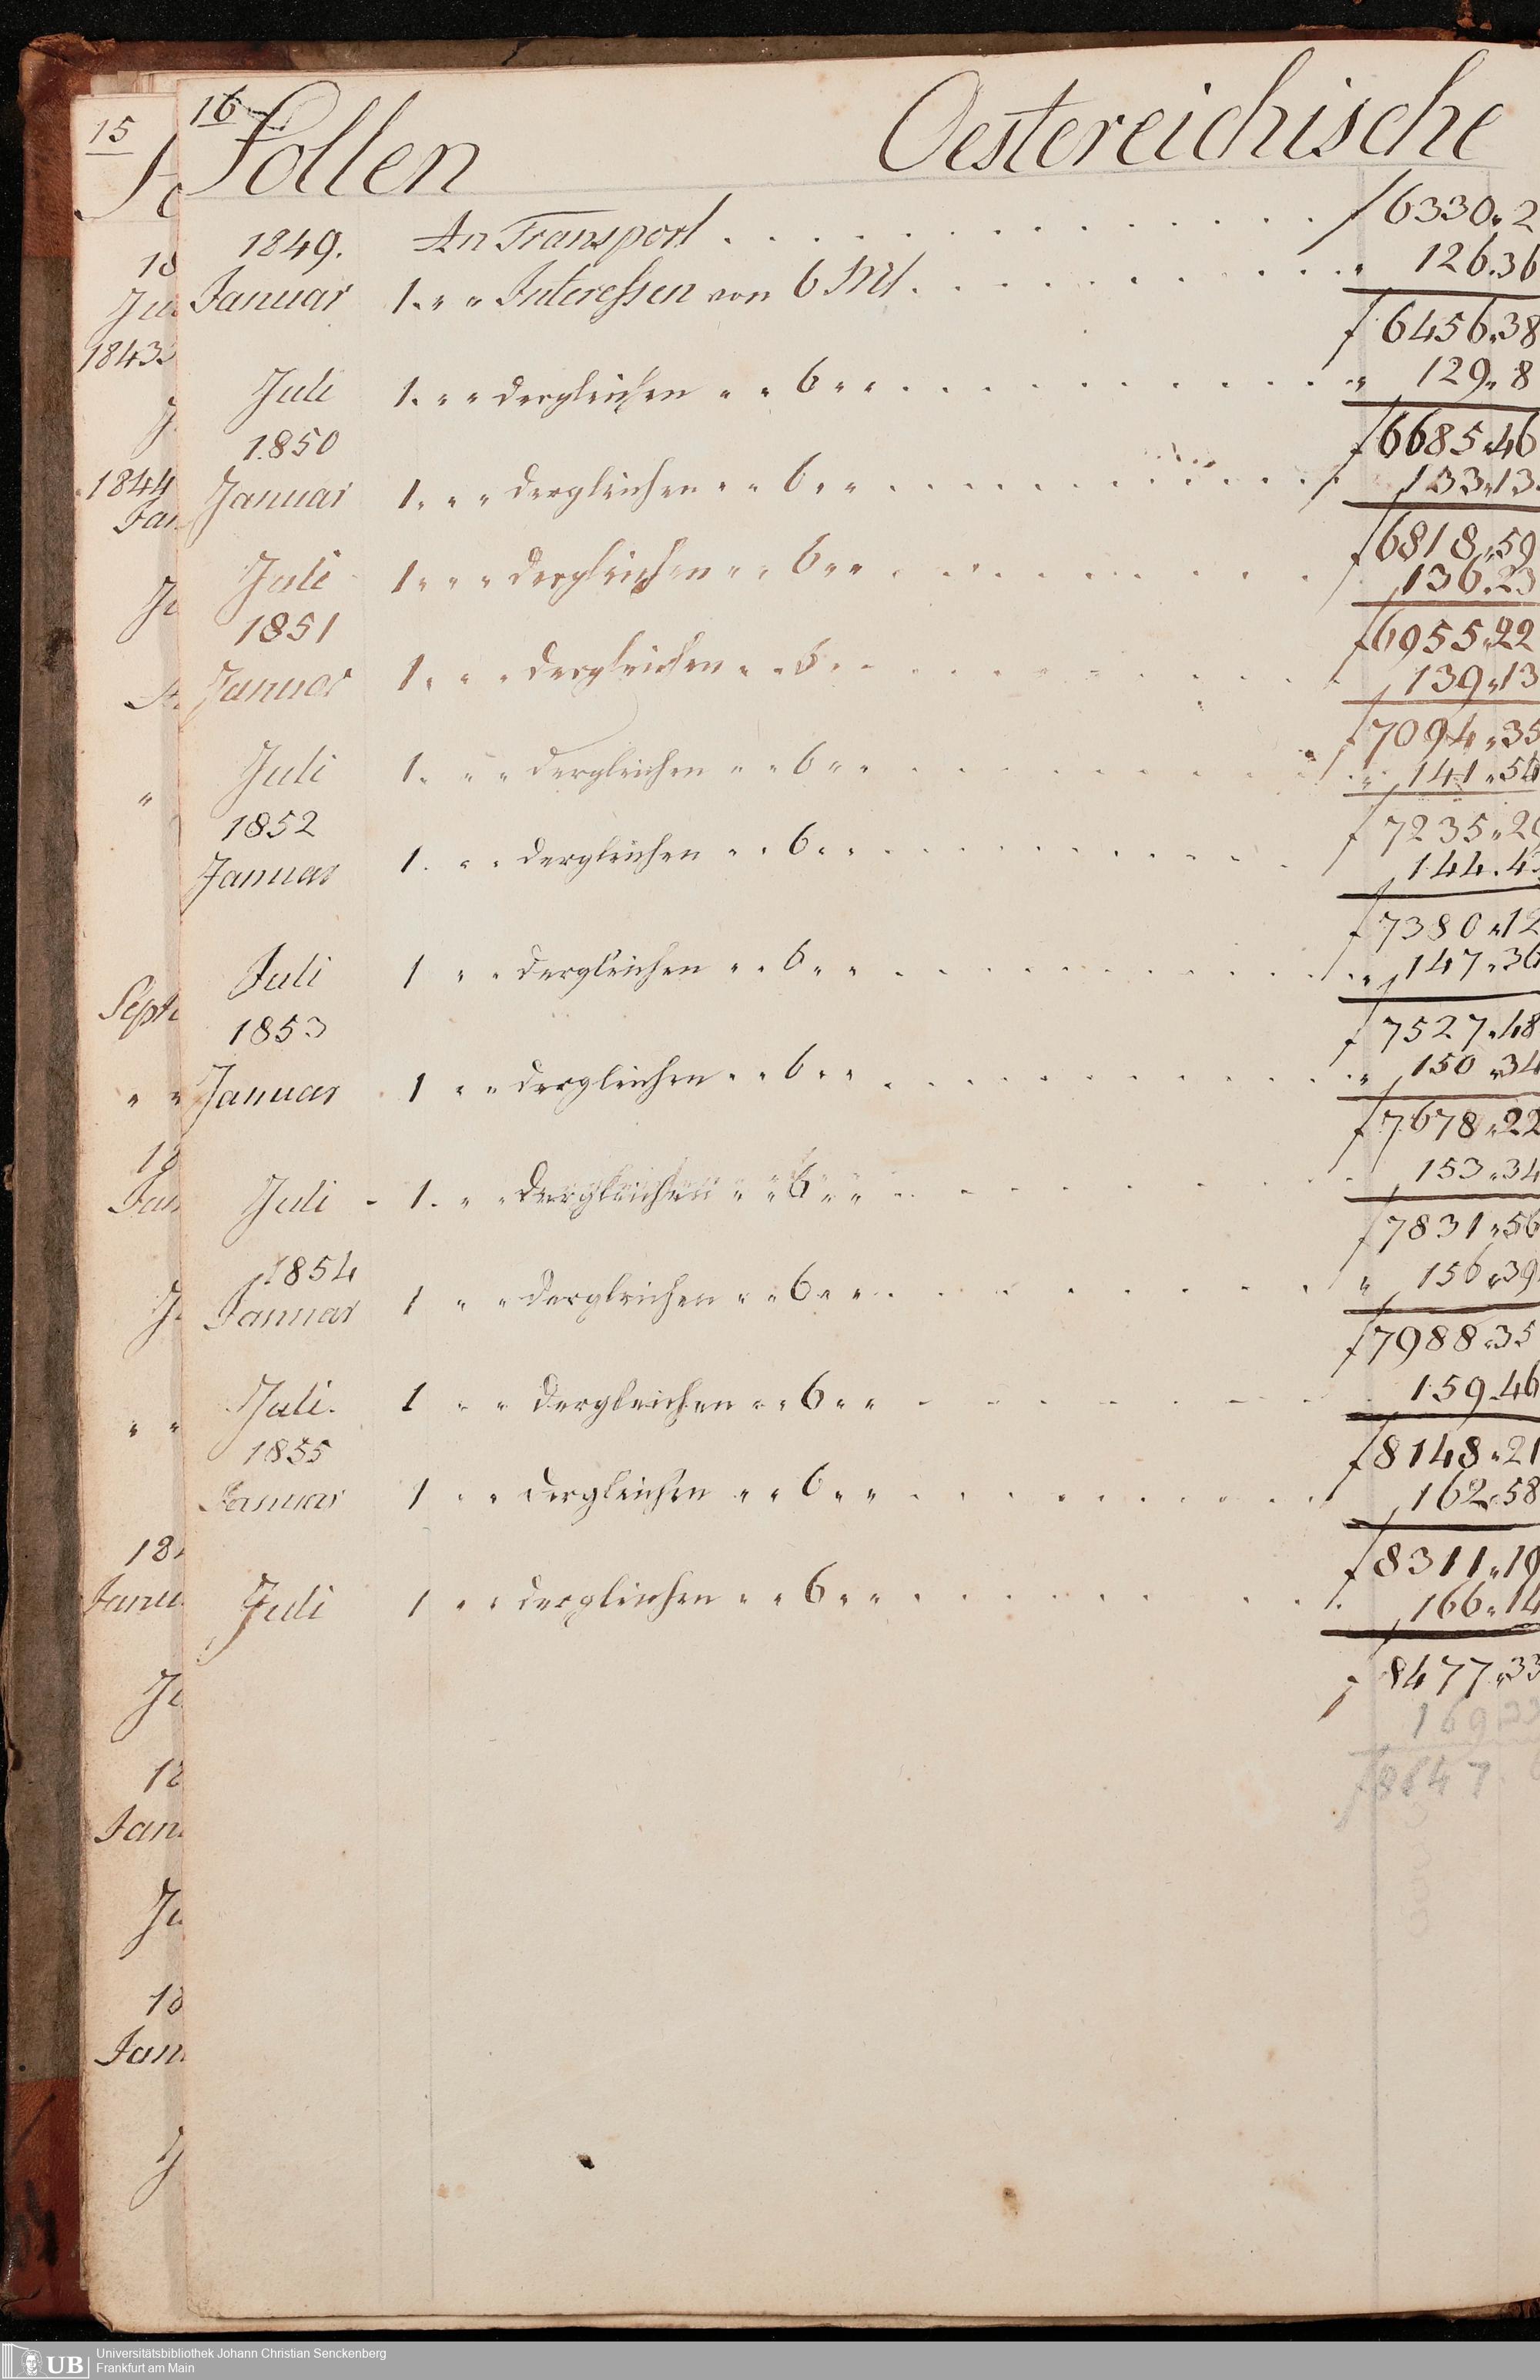 15
18
1843
1844
Jan
Sept
18
Jan
18
Janu
18
Jan
18
Jan
16
Sollen Oestereichische
1849. An Transport f 6330 „ 2
Januar 1. „ „ Interessen von 6 Mt. „ 126 . 36
f 6456 „ 38
Juli 1. „ „ dergleichen „ „ 6 „ „ „ 129 „ 8
1850 f 6685 „ 46
Januar 1. „ „ dergleichen „ „ 6 „ „ 133 „ 13
f 6818 „ 59
Juli 1. „ „ dergleichen „ „ 6 „ „ 136 . 23
1851 f 6955 „ 22
Januar 1. „ „ dergleichen „ „ 6 „ „ 139 „ 13
f 7094 „ 35
Juli 1. „ „ dergleichen „ „ 6 „ „ „ 141 „ 54
1852 f 7235 „ 2
Januar 1. „ „ dergleichen „ „ 6 „ „ 144 . 4
f 7380 „ 12
Juli 1 „ „ dergleichen „ „ 6 „ „ „ 147 „ 36
1853 f 7527 „ 48
Januar 1 „ „ dergleichen „ „ 6 „ „ „ 150 „ 34
f 7678 „ 22
Juli - 1. „ „ dergleichen „ „ 6 „ „ 153 „ 34
f 7831 „ 56
1854
Januar 1 „ „ dergleichen „ „ 6 „ „ „ 156 „ 39
f 7988 „ 35
Juli. 1 „ „ dergleichen „ „ 6 „ „ 159 „ 46
1855 f 8148 „ 21
Januar 1 „ „ dergleichen „ „ 6 „ „ 162 „ 58
f 8311 „ 19
Juli 1 „ „ dergleichen „ „ 6 „ „ 166 „ 14
f 8477 „ 33
169
UB
Universitätsbibliothek Johann Christian Senckenberg
Frankfurt am Main